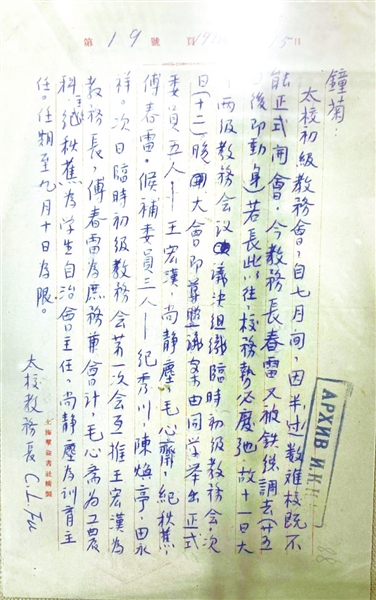 第19號 頁19 15日
鐘菊:
太校初級教務會,自七月間,因半过數难校既不
能正式開會,今教務長春雷又被鉄 調去(廿五
日後即動身)若長此以往,校務勢必廢弛。故十一日大
兩級教務会议議決組織臨時初級教務会,次
日(十二)晚開大會。即尊照議案由同学举出正式
委員五人——王宏漢,尚静塵,毛心齋,紀秩蕉
傅春雷。候補委員三人——紀秀川,陳煥亭,田永
祥。次日臨時初級教務会第一次会互推王宏漢为
教務長,傅春雷为庶務兼會計,毛心齋为工農
科,紀秩蕉为学生自治会主任,尚静塵为訓育主
任。任期至九月十日为限。
太校教務長 C.L.Fu
АРХИВ И.К.К.И.
88